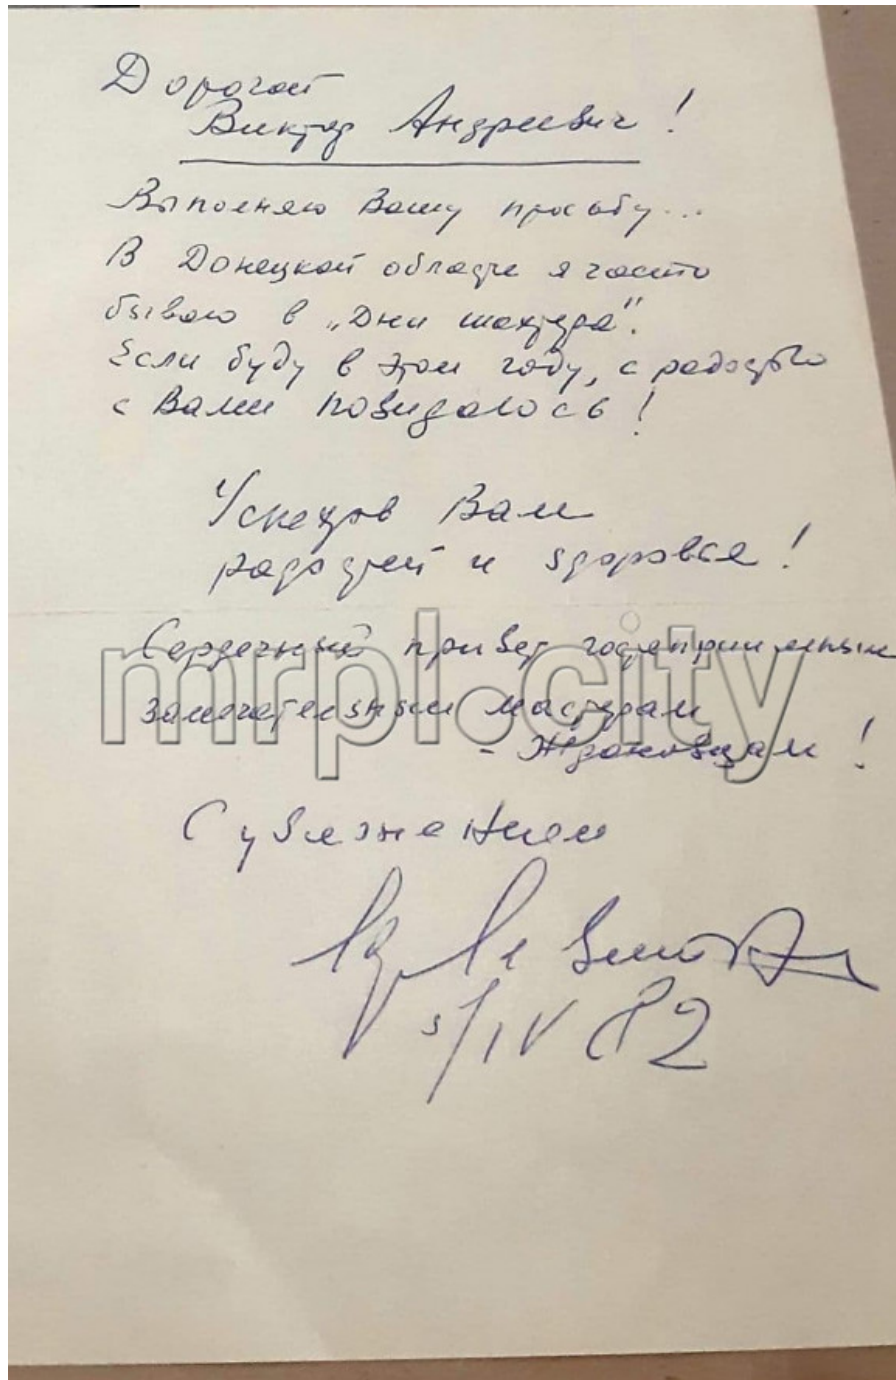 Дорогой
Виктор Андреевич!
Выполняю Вашу просьбу...
В Донецкой области я часто
бываю в „Дни шахтера”.
Если буду в этом году, с радостью
с Вами повидаюсь!
Успехов Вам
радостей и здоровья!
Сердечный привет гостеприимным
замечательным мастерам
- Ждановцам!
С уважением
5/IV 82
mrpl.city